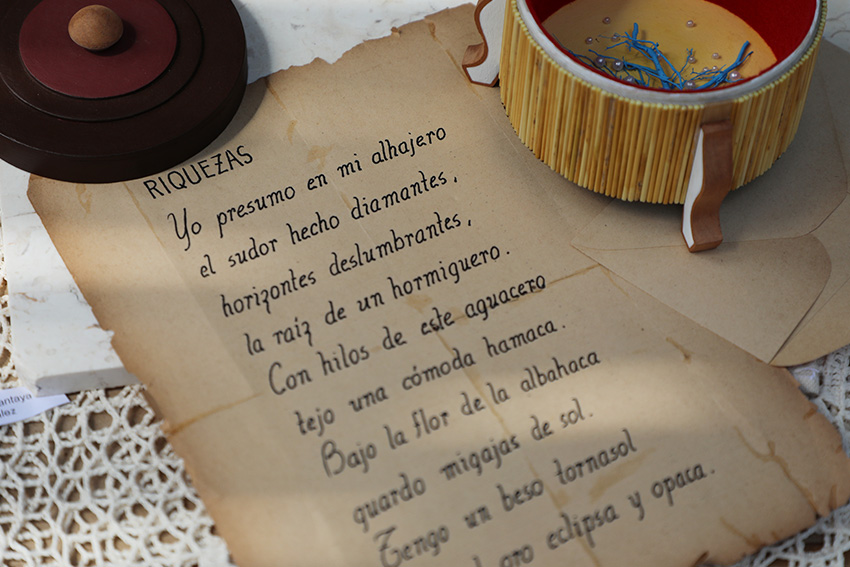 RIQUEZAS
Yo presumo en mi alhajero
el sudor hecho diamantes,
horizontes deslumbrantes,
la raíz de un hormiguero.
Con hilos de este aguacero
tejo una cómoda hamaca.
Bajo la flor de la albahaca
guardo migajas de sol.
Tengo un beso tornasol
oro eclipsa y opaca.